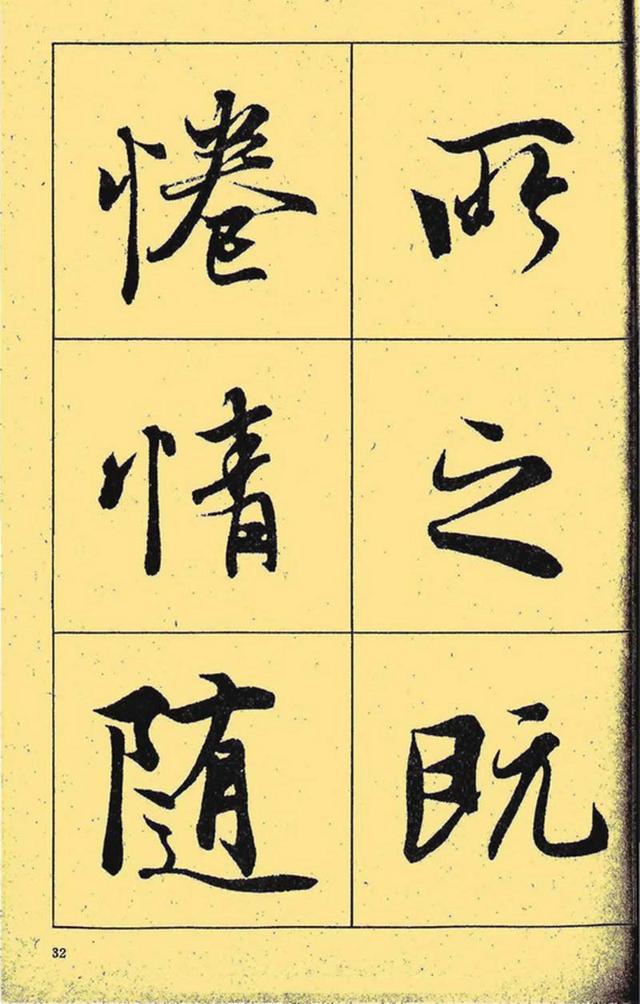 所之既
惓情随
32